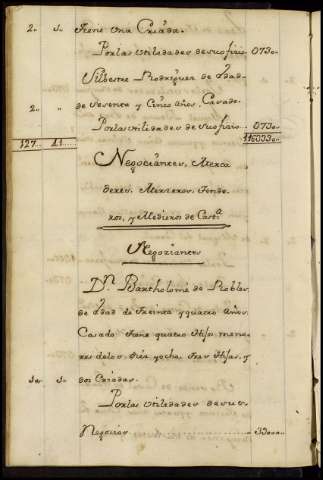 2. 1. Tiene Una Criada.
Por las Utilidades de su oficio 0730.
Silbestre Rodriguez de Edad
2. " de Sesenta y Cinco años, Casado.
Por las Utilidades de su oficio 0730.
127. 41.
Negociantes, Merca
deres, Merzeros, Tende
ros, y Medieros de Cartª
Negoziantes
Dn. Bartholomé de Robles
de Edad de Treinta y quatro Años
Casado tiene quatro Hijos meno
res de los diez y ocho, tres Hijas, y
dos Criadas.
Por las Utilidades de sus
Negocios